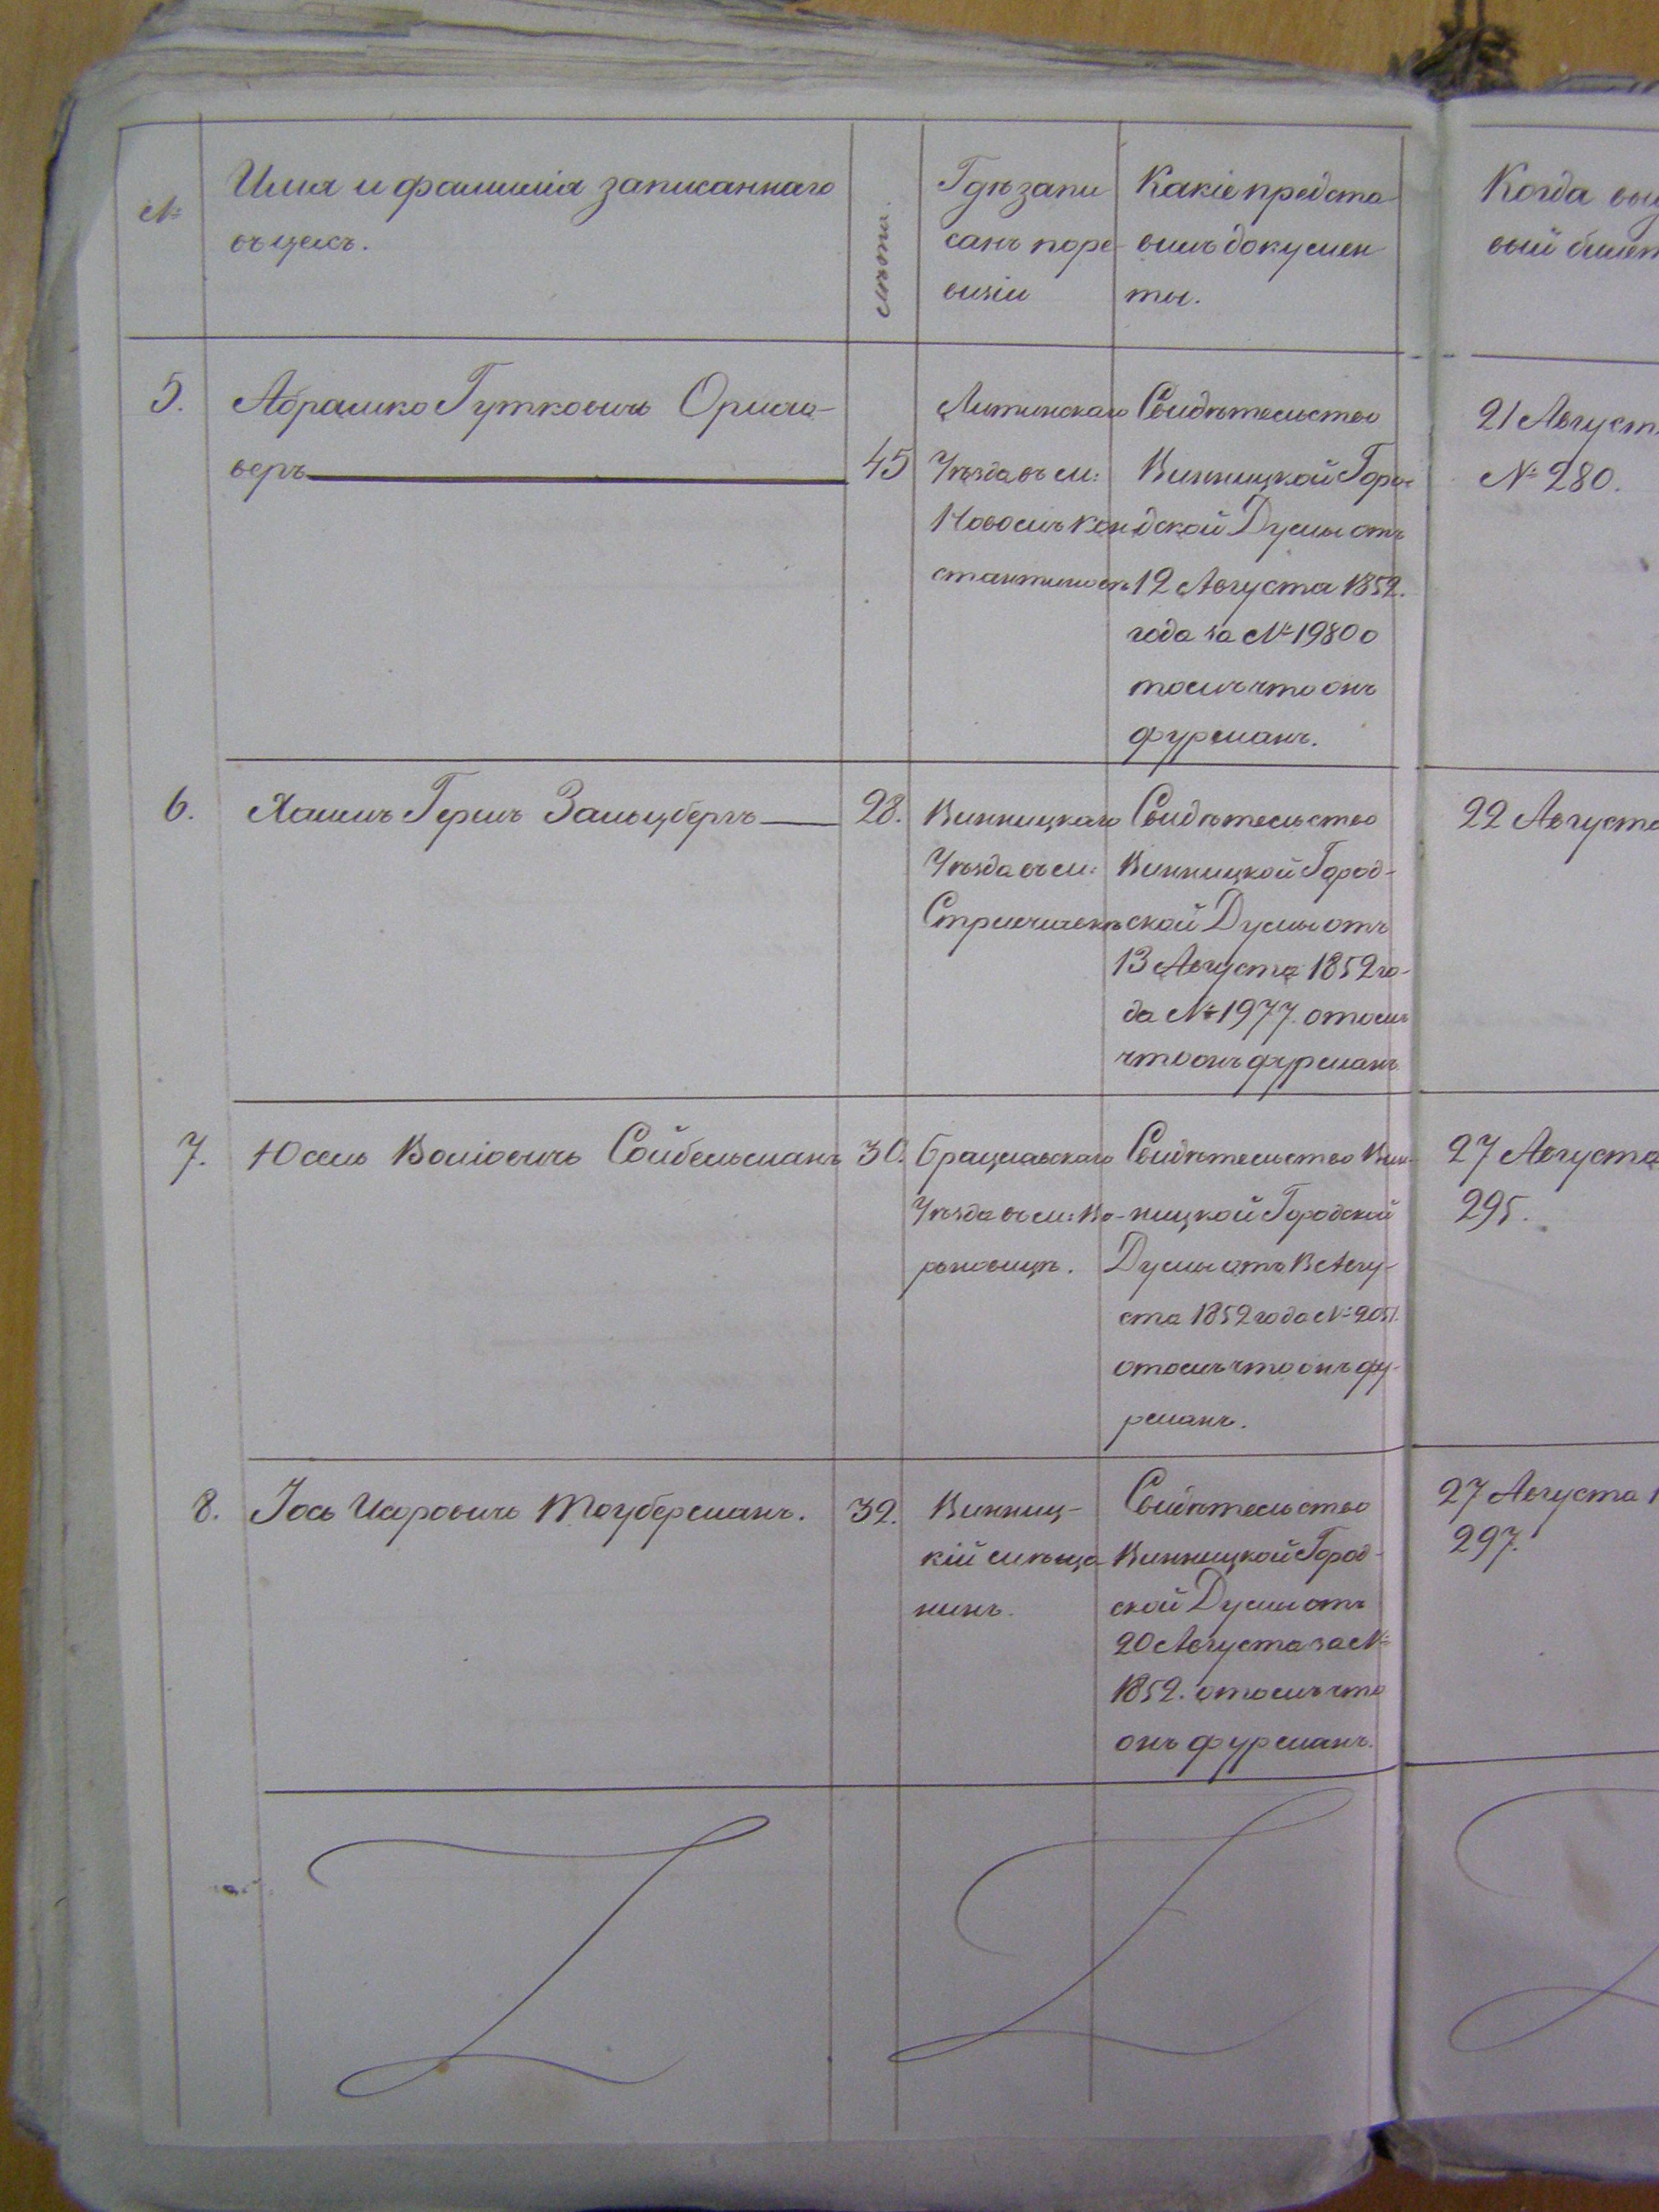 №
Имя и фамилія записаннаго
въ цехъ.
лѣта.
Гдѣ запи
санъ поре-
визіи
Какіе предста
вилъ докумен
ты.
Когда
вый билет
5.
Абрашко Гутковичъ
45
Литинскаго
Уѣзда въ м:
Новомъ Кон
стантиновѣ
Свидѣтельство
Винницкой Горо-
дской Думы отъ
12 Августа 1852.
года за № 1980 о
томъ что онъ
фурманъ.
21 Август
№ 280.
6.
Хаимъ Гершъ Зальцбергъ
28.
Винницкаго
Уѣзда въ м:
Свидѣтельство
Винницкой Город-
ской Думы отъ
13 Августа 1852 го-
да № 1977. о томъ
что онъ фурманъ
22 Августа
7.
Юсель Сойбельманъ
30.
Брацлавскаго
Уѣзда въ м: Во-
роновицѣ.
Свидѣтельство Вин-
ницкой Городской
Думы отъ Авгу-
ста 1852 года № 2051.
о томъ что онъ фу-
рманъ.
27 Августа
295.
8.
Іось Исоровичъ Тоуберманъ.
32.
Винниц-
кій мѣща-
нинъ.
Свидѣтельство
Винницкой Город-
ской Думы отъ
20 Августа за №
1852. о томъ что
онъ фурманъ.
27 Августа 1
297.